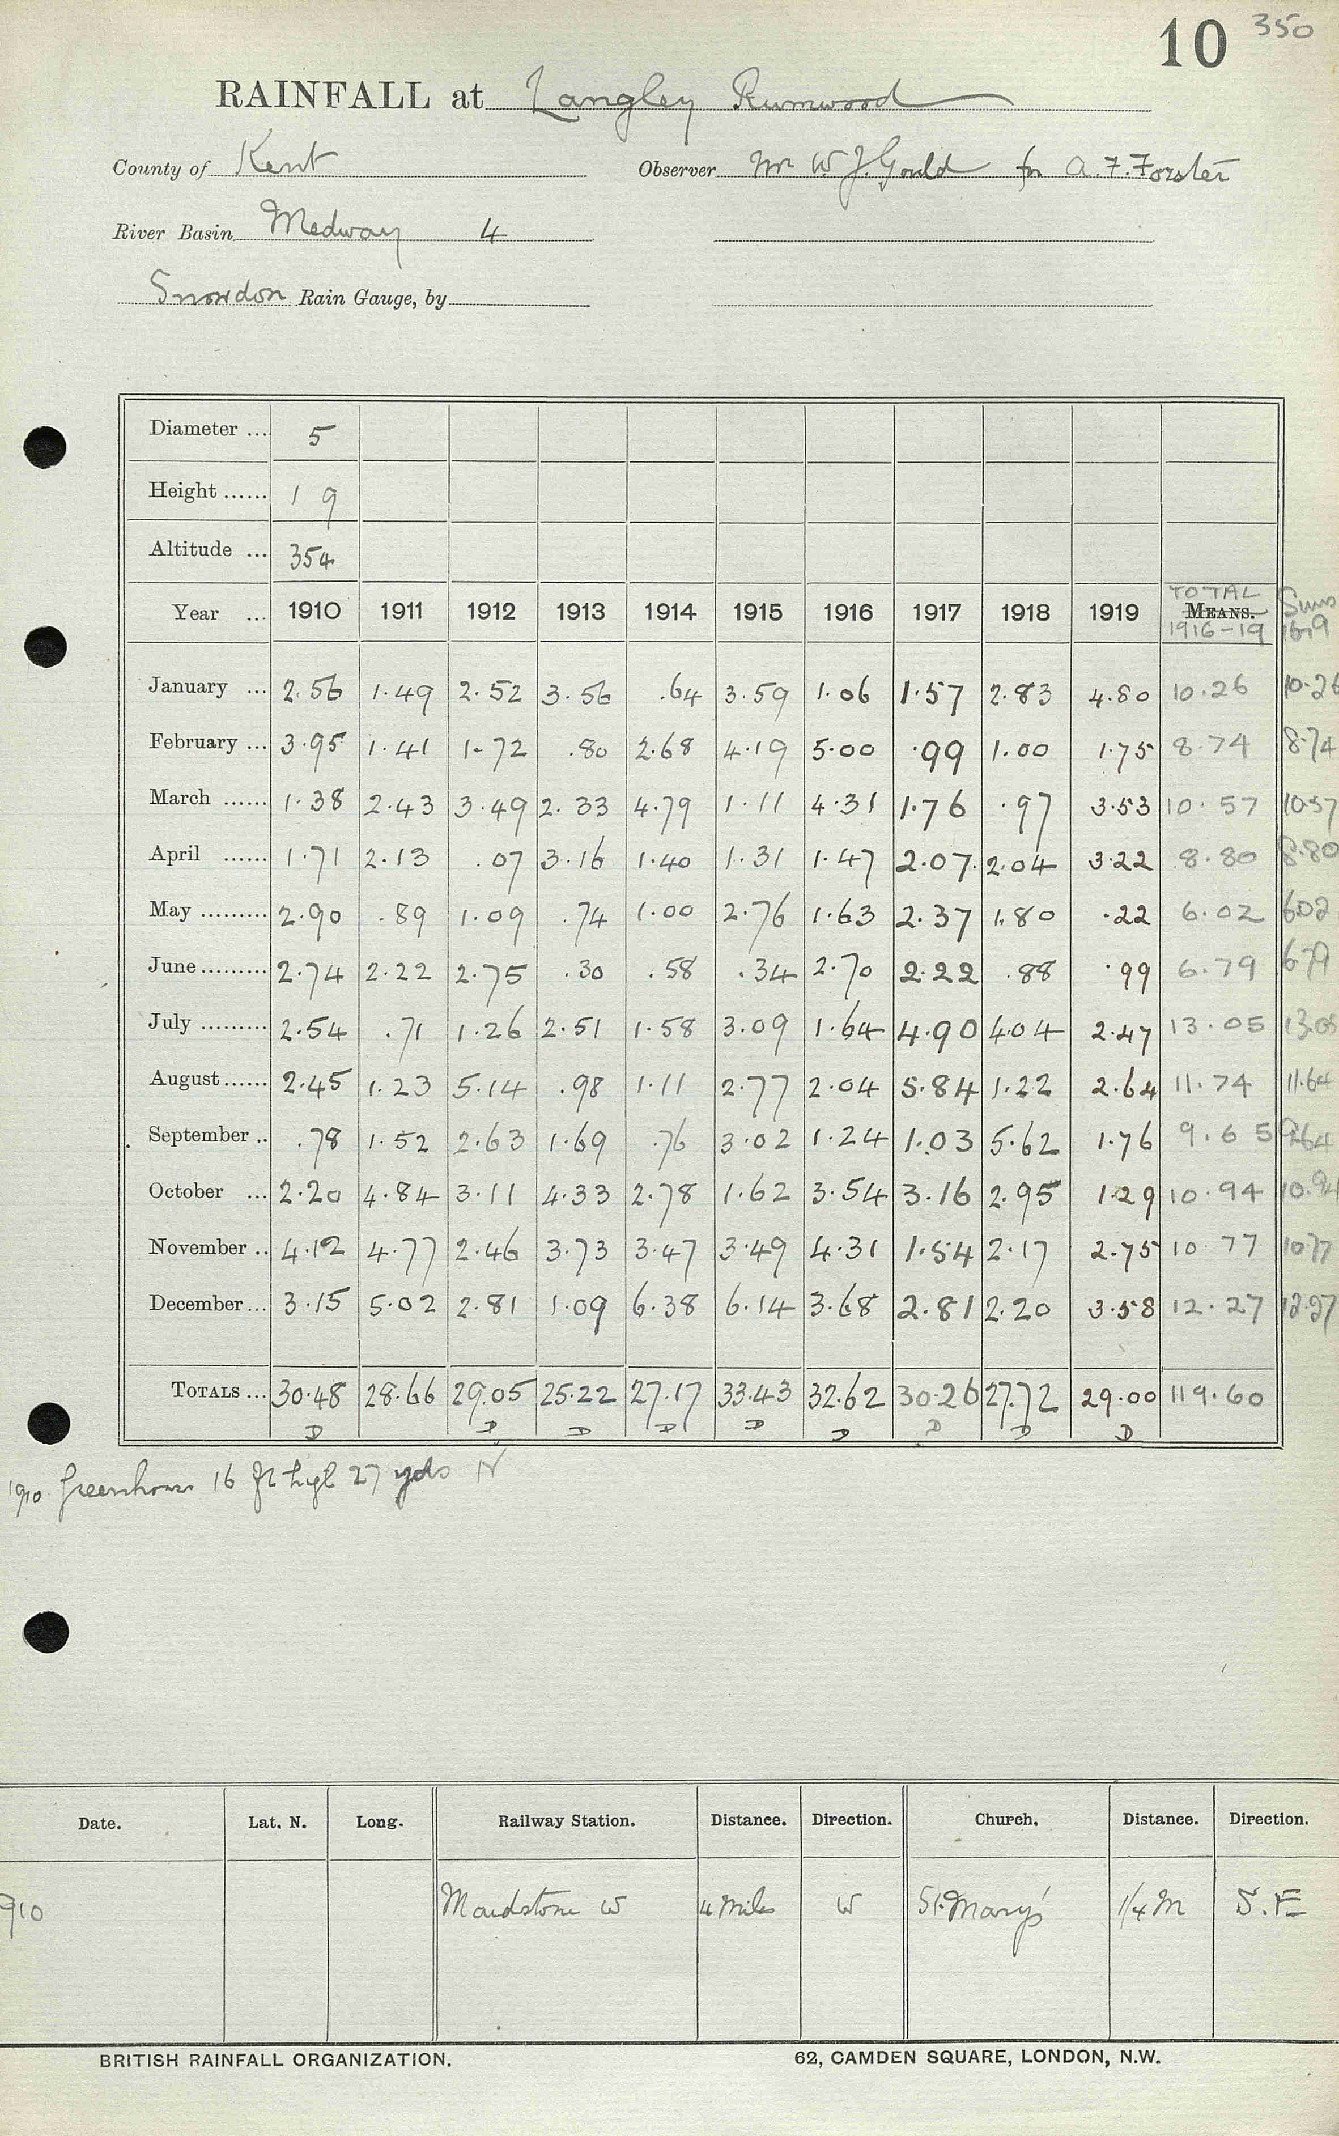 10 350
RAINFALL at Langley Rumwood
County of Kent Observer Mr W. J. Gould for A. F. Forster
River Basin Medway 4
Snowdon Rain Gauge, by
Diameter ... 5
Height ...... 1 9
Altitude ... 354
Year ... 1910 1911 1912 1913 1914 1915 1916 1917 1918 1919 TOTAL MEANS. 1916-19 Sums 16-19
January ... 2.56 1.49 2.52 3.56 .64 3.59 1.06 1.57 2.83 4.80 10.26 10.26
February ... 3.95 1.41 1.72 .80 2.68 4.19 5.00 .99 1.00 1.75 8.74 8.74
March ...... 1.38 2.43 3.49 2.33 4.79 1.11 4.31 1.76 .97 3.53 10.57 10.57
April ...... 1.71 2.13 .07 3.16 1.40 1.31 1.47 2.07 2.04 3.22 8.80 8.80
May ......... 2.90 .89 1.09 .74 1.00 2.76 1.63 2.37 1.80 .22 6.02 6.02
June ......... 2.74 2.22 2.75 .30 .58 .34 2.70 2.22 .88 .99 6.79 6.79
July ......... 2.54 .71 1.26 2.51 1.58 3.09 1.64 4.90 4.04 2.47 13.05 13.05
August ...... 2.45 1.23 5.14 .98 1.11 2.77 2.04 5.84 1.22 2.64 11.74 11.64
September .. .78 1.52 2.63 1.69 .76 3.02 1.24 1.03 5.62 1.76 9.65 9.64
October ... 2.20 4.84 3.11 4.33 2.78 1.62 3.54 3.16 2.95 1.29 10.94 10.94
November .. 4.12 4.77 2.46 3.73 3.47 3.49 4.31 1.54 2.17 2.75 10 77 10.77
December ... 3.15 5.02 2.81 1.09 6.38 6.14 3.68 2.81 2.20 3.58 12.27 12.27
TOTALS ... 30.48 28.66 29.05 25.22 27.17 33.43 32.62 30.26 27.72 29.00 119.60
D D D D D D D D D
1910 Greenhouse 16 ft high 27 yds N
Date. Lat. N. Long. Railway Station. Distance. Direction. Church. Distance. Direction.
910 Maidstone W 4 Miles W St. Mary's 1/4 M S.E
BRITISH RAINFALL ORGANIZATION. 62, CAMDEN SQUARE, LONDON, N.W.